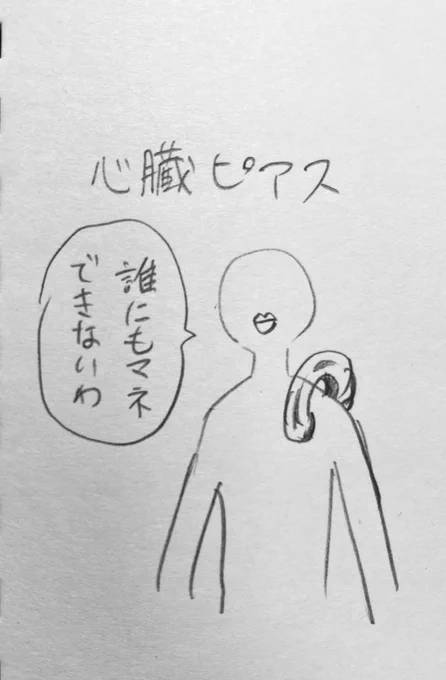 心臓ピアス
誰にもマネ
できないわ